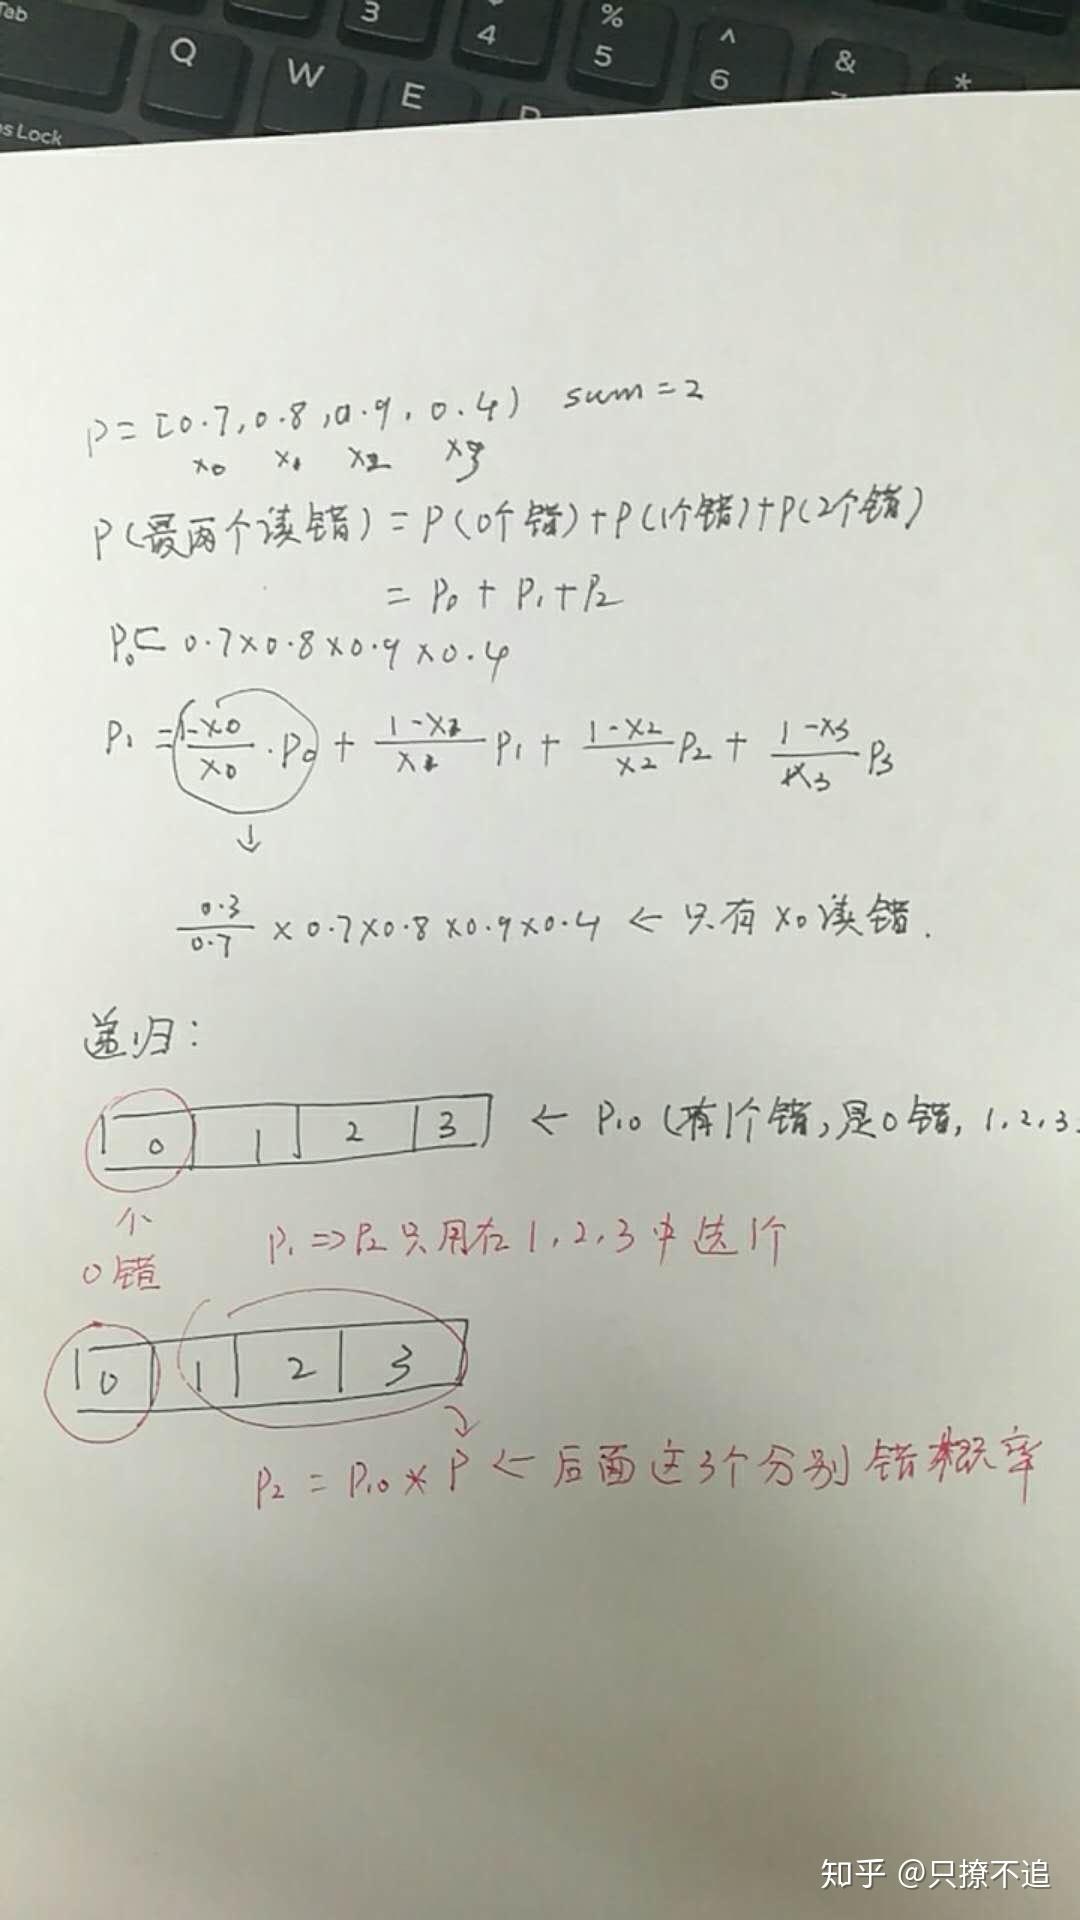 Tab
3
4
%
5
^
6
&
*
Q
W
E
s Lock
P = [0.7, 0.8, 0.9, 0.4) sum = 2
x0 x1 x2 x3
P(最两个读错) = P(0个错)+P(1个错)+P(2个错)
= P0 + P1 + P2
P0 = 0.7×0.8×0.9×0.4
P1 = (1-x0)/x0 · P0 + (1-x1)/x1 P1 + (1-x2)/x2 P2 + (1-x3)/x3 P3
↓
0.3/0.7 × 0.7×0.8×0.9×0.4 ← 只有x0读错.
递归:
0 1 2 3 ← P10 (有1个错,是0错, 1, 2, 3
个
0错
P1 => P2 只用在1, 2, 3中选1个
0 1 2 3
P2 = P10 * P ← 后面这3个分别错概率
知乎 @只撩不追